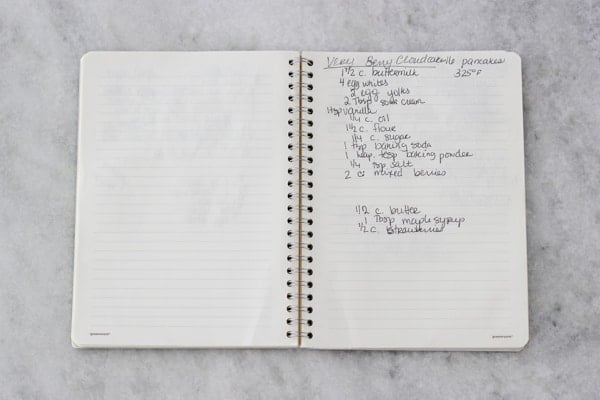 Very Berry Cloudcake pancakes
1 1/2 c. buttermilk 325°F
4 egg whites
2 egg yolks
2 Tbsp sour cream
1 tsp vanilla
1/4 c. oil
1 1/2 c. flour
1/4 c. sugar
1 tsp baking soda
1 heap. tssp baking powder
1/4 tsp salt
2 c mixed berries
1/2 c. butter
1 Tbsp maple syrup
1/2 c. strawberries